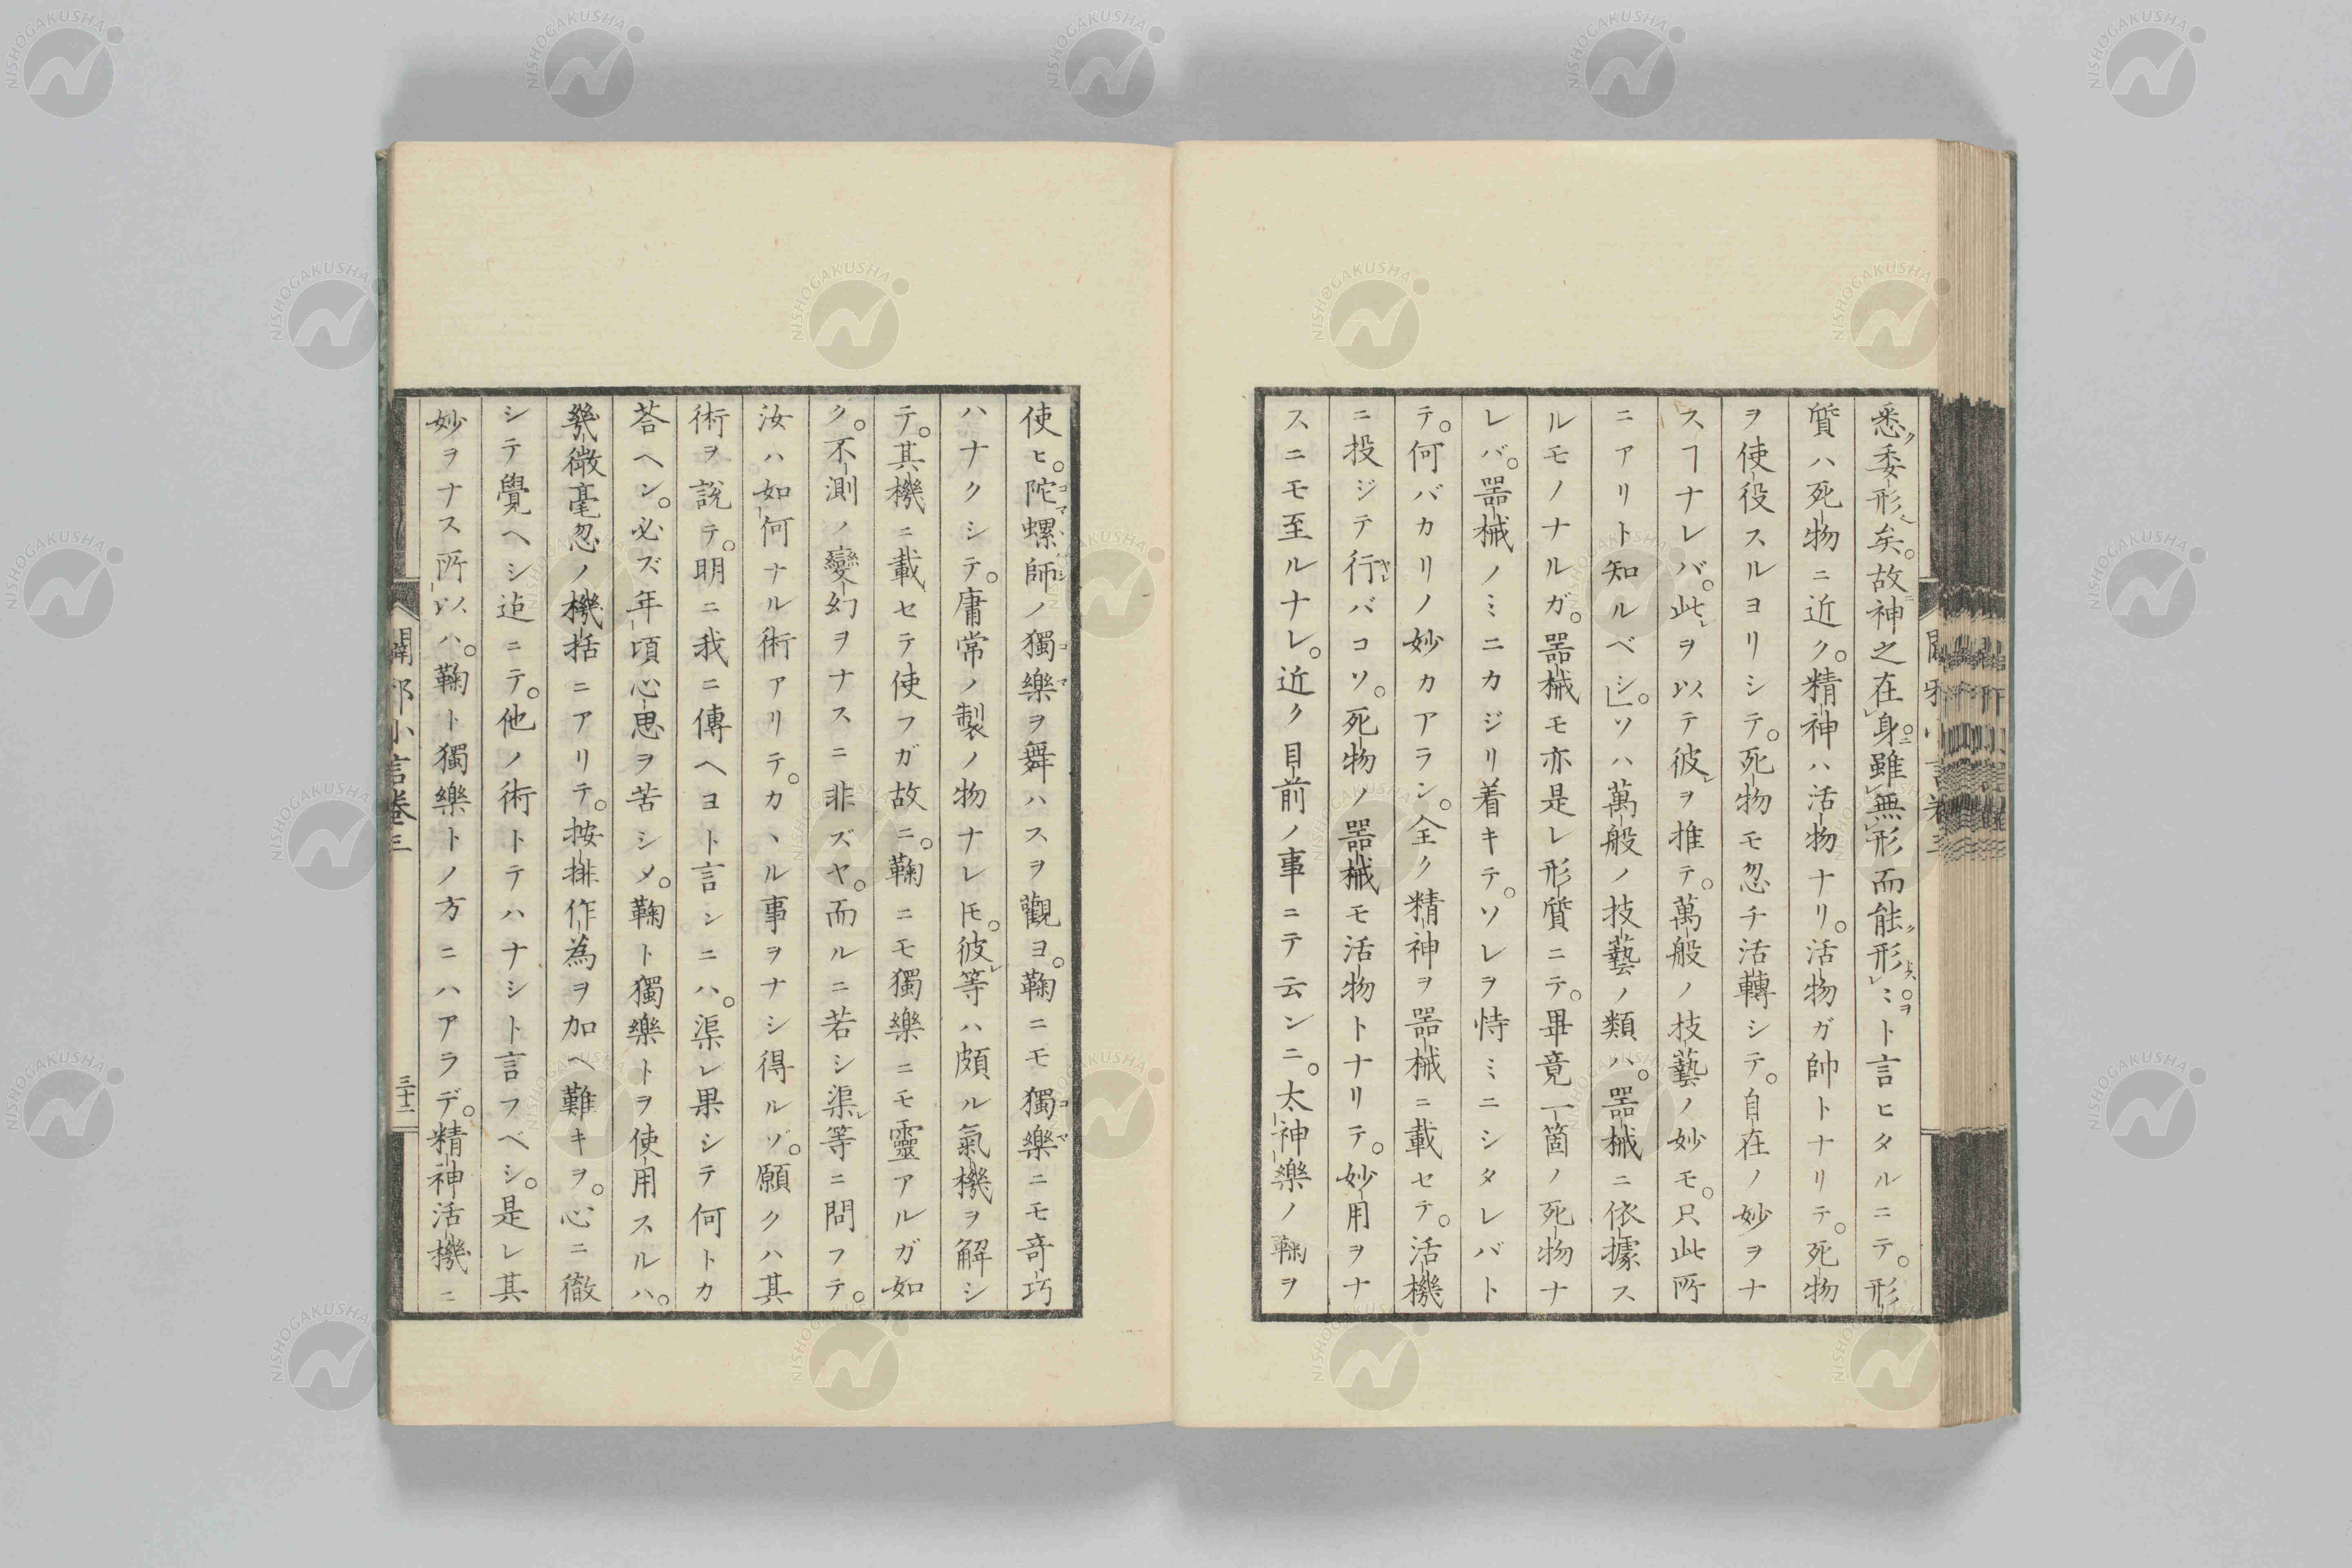 悉委形矣。故神之在身雖無形而能形ミヲト言ヒタルニテ。形
質ハ死物ニ近ク。精神ハ活物ナリ。活物ガ帥トナリテ。死物
ヲ使役スルヨリシテ。死物モ忽チ活轉シテ。自在ノ妙ヲナ
スヿナレバ。此ヲ以テ彼ヲ推テ。萬般ノ技藝ノ妙モ。只此所
ニアリト知ルベシ」。ソハ萬般ノ技藝ノ類ハ。器械ニ依據ス
ルモノナルガ。器械モ亦是レ形質ニテ。畢竟一箇ノ死物ナ
レバ。器械ノミニカジリ着キテ。ソレヲ恃ミニシタレバト
テ。何バカリノ妙カアラン。全ク精神ヲ器械ニ載セテ。活機
ニ投ジテ行バコソ。死物ノ器械モ活物トナリテ。妙用ヲナ
スニモ至ルナレ。近ク目前ノ事ニテ云ンニ。太神樂ノ鞠ヲ
使ヒ。陀螺師ノ獨樂ヲ舞ハスヲ觀ヨ。鞠ニモ獨樂ニモ奇巧
ハナクシテ。庸常ノ製ノ物ナレ𪜈。彼等ハ頗ル氣機ヲ解シ
テ。其機ニ載セテ使フガ故ニ。鞠ニモ獨樂ニモ靈アルガ如
ク。不測ノ變幻ヲナスニ非ズヤ。而ルニ若シ渠等ニ問フテ。
汝ハ如何ナル術アリテ。カヽル事ヲナシ得ルゾ。願クハ其
術ヲ說テ。明ニ我ニ傳ヘヨト言シニハ。渠レ果シテ何トカ
荅ヘン。必ズ年頃心思ヲ苦シメ。鞠ト獨樂トヲ使用スルハ。
幾微毫忽ノ機括ニアリテ。按排作為ヲ加ヘ難キヲ。心ニ徹
シテ覺ヘシ迠ニテ。他ノ術トテハナシト言フベシ。是レ其
妙ヲナス所以ハ。鞠ト獨樂トノ方ニハアラデ。精神活機ニ
闢邪小言卷三
三十二